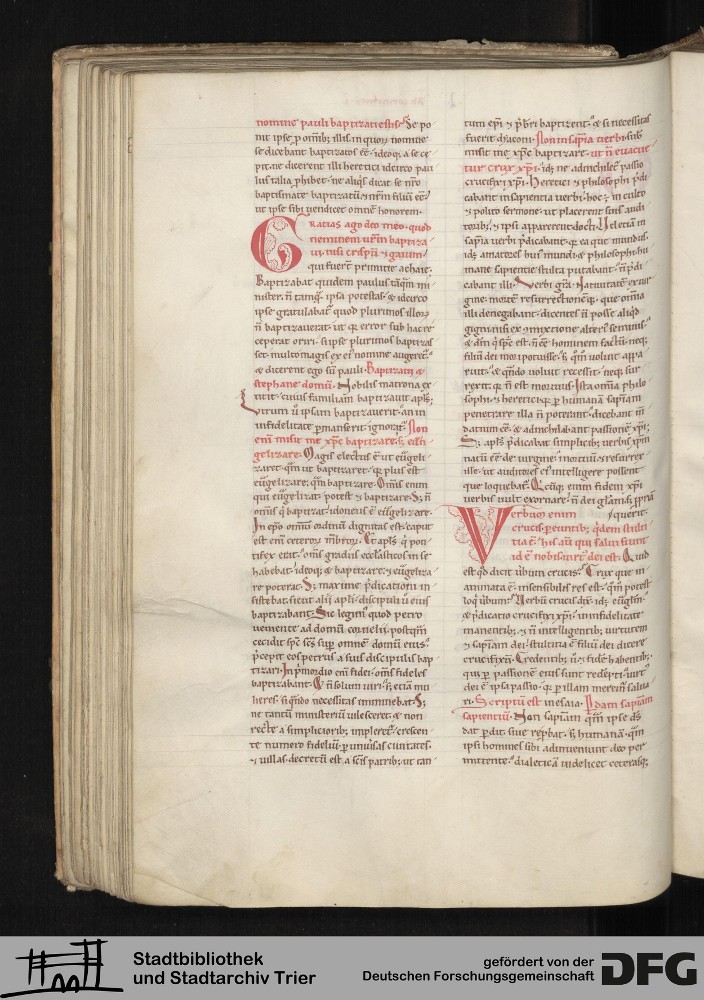 nomine pauli baptizati estis. Se po
nit ipse p omib; illis in quoꝝ nomine
se dicebant baptizatos eē. ideoq; a se ce
pit. ne dicerent illi heretici idcirco pau
lus talia phibet. ne aliq̄s dicat se nr̄o
baptismate baptizatū
ut ipse sibi uendicet omnē honorem.
Gratias ago deo meo. quod
neminem urm baptiza
ui. nisi crispū & gaium.
qui fuert primitie achaie.
Baptizabat quidem paulus tāqm mi
nister. n̄ tamq̄ ipsa potestas. & idcirco
ipse gratulabat quod plurimos illoꝝ
n̄ baptizauerat. ut error sub hac re
ceperat oriri. si ipse plurimos baptizas
set. multo magis ex ei nomine augeret.
& dicerent ego sū pauli. Baptizaui &
stephane domū. Nobilis matrona ex
titit. cuius familiam baptizauit apls;
Utrum ū ipsam baptizauerit. an in
infidelitate pmanserit ignorat. Non
enī misit me xp̄c baptizare. s; euan
gelizare. Magis electus ē ut euḡeli
zaret. qm ut baptizaret. qr plus est
euḡelizare. qm baptizare. Omis enim
qui euḡelizat. potest & baptizare. S; n̄
omis q̄ baptizat. idoneus ē euḡelizare.
In ep̄o omiū ordinū dignitas est. caput
est enī ceteroꝝ mbroꝝ. Et apls q̄ pon
tifex erat. omis gradus eccl̄asticos in se
habebat. ideoq; & baptizare. & euḡeliza
re poterat. S; maxime p̄dicationi in
sistebat. sicut alii apli. discipuli ū eius
baptizabant. Sic legimus quod petro
ueniente ad domū cornelii. postqm
cecidit spc̄ sc̄s sup omnē domū eius.
p̄cepit eos petrus a suis discipulis bap
tizari. In pmordio enī fidei. omis fideles
baptizabant. & n̄ solum uiri. s; etiā mu
lieres. si q̄ndo necessitas imminebat. S;
ne tantū ministeriū uilesceret. & non
recte a simplicioribus impleret. crescen
te numero fideliū p uniusas ciuitates.
& uillas. decretū est a scis patrib; ut tan
tum epi & pbri baptizent. & si necessitas
fuerit diaconi. Non in sapia uerbi. sub
misit me xp̄c baptizare. ut n̄ euacue
tur crux xpi. id; ne adnichilet passio
crucifixi xpi. Heretici & philosophi p̄di
cabant in sapientia uerbi. hoc ē in culto
& polito sermone. ut placerent suis audi
toribus. & ipsi apparerent docti. Uel etiā in
sapia uerbi p̄dicabant. qr ea que mundus.
id; amatores huius mundi. & philosophi hu
mane sapientie stulta putabant. n̄ p̄di
cabant illi. Uerbi gr̄a. Natiuitatē ex uir
gine. mortē. resurrectionēq;. que omia
illi denegabant. dicentes n̄ posse aliq̄d
gigni nisi ex mixtione alteri seminis.
neq;
filiū dei mori potuisse. s; qm uoluit appa
ruit. & q̄ndo uoluit recessit. neq; sur
rexit. qr n̄ est mortuus. Ista omia philo
sophi. & heretici. qr p humanā sapiam
penetrare illa n̄ poterant. dicebant
& adnichilabant passionē xpi;
S; apls p̄dicabat simplicib; uerbis xpm
natū eē de uirgine. mortuū & resurrex
isse. ut auditores ei intelligere possent
que loquebat. Qcūq; enim fidem xpi
uerbis uult exornare. n̄ dei glam. s; ppria
querit.
Verbum enim
crucis. peuntib; q̄dem stulti
tia ē. his aū qui salui fiunt
id ē nobis. uirt; dei est. Quid
est qd dicit ūbum crucis. Crux que in
animata ē. insensibilis res est. qm potest
loq ūbum. Uerbū crucis dix. id; euḡliū.
& p̄dicatio crucifixi xpi. in infidelitate
manentib; & n̄ intelligentib; uirtutem
& sapiam dei. stultitia ē filiū dei dicere
crucifixū. Credentib; ū & fidē habentib;
qui p passionē eius sunt redēpti. uirt;
dei ē ipsa passio. qr p illam meremr salua
ri. Scriptū est in esaia. Pdam sapiam
sapientiū. Non sapiam qm ipse ds
dat pdit siue reprbat. s; humanā. qm
ipsi homines sibi adinueniunt deo per
mittente. dialeticā uidelicet ceterasq;
Stadtbibliothek
und Stadtarchiv Trier
gefördert von der
Deutschen Forschungsgemeinschaft
DFG